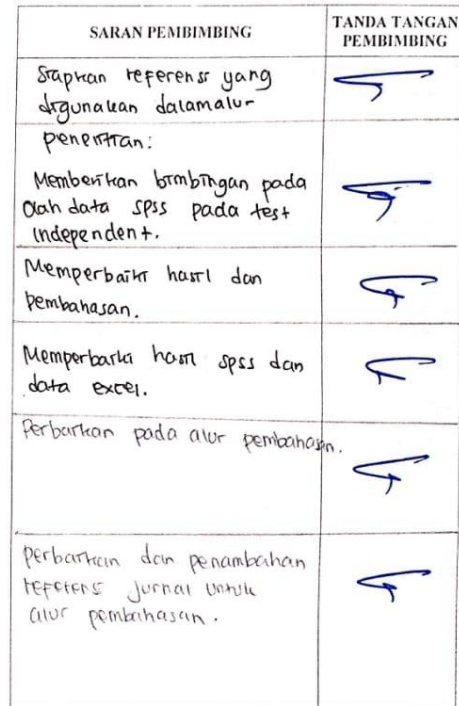 SARAN PEMBIMBING
TANDA TANGAN
PEMBIMBING
Siapkan referensi yang
digunakan dalam alur
penelitian:
Memberikan bimbingan pada
olah data spss pada test
independent.
Memperbaiki hasil dan
pembahasan.
Memperbaiki hasil spss dan
data excel.
Perbaikan pada alur pembahasan.
perbaikan dan penambahan
referensi jurnal untuk
alur pembahasan.